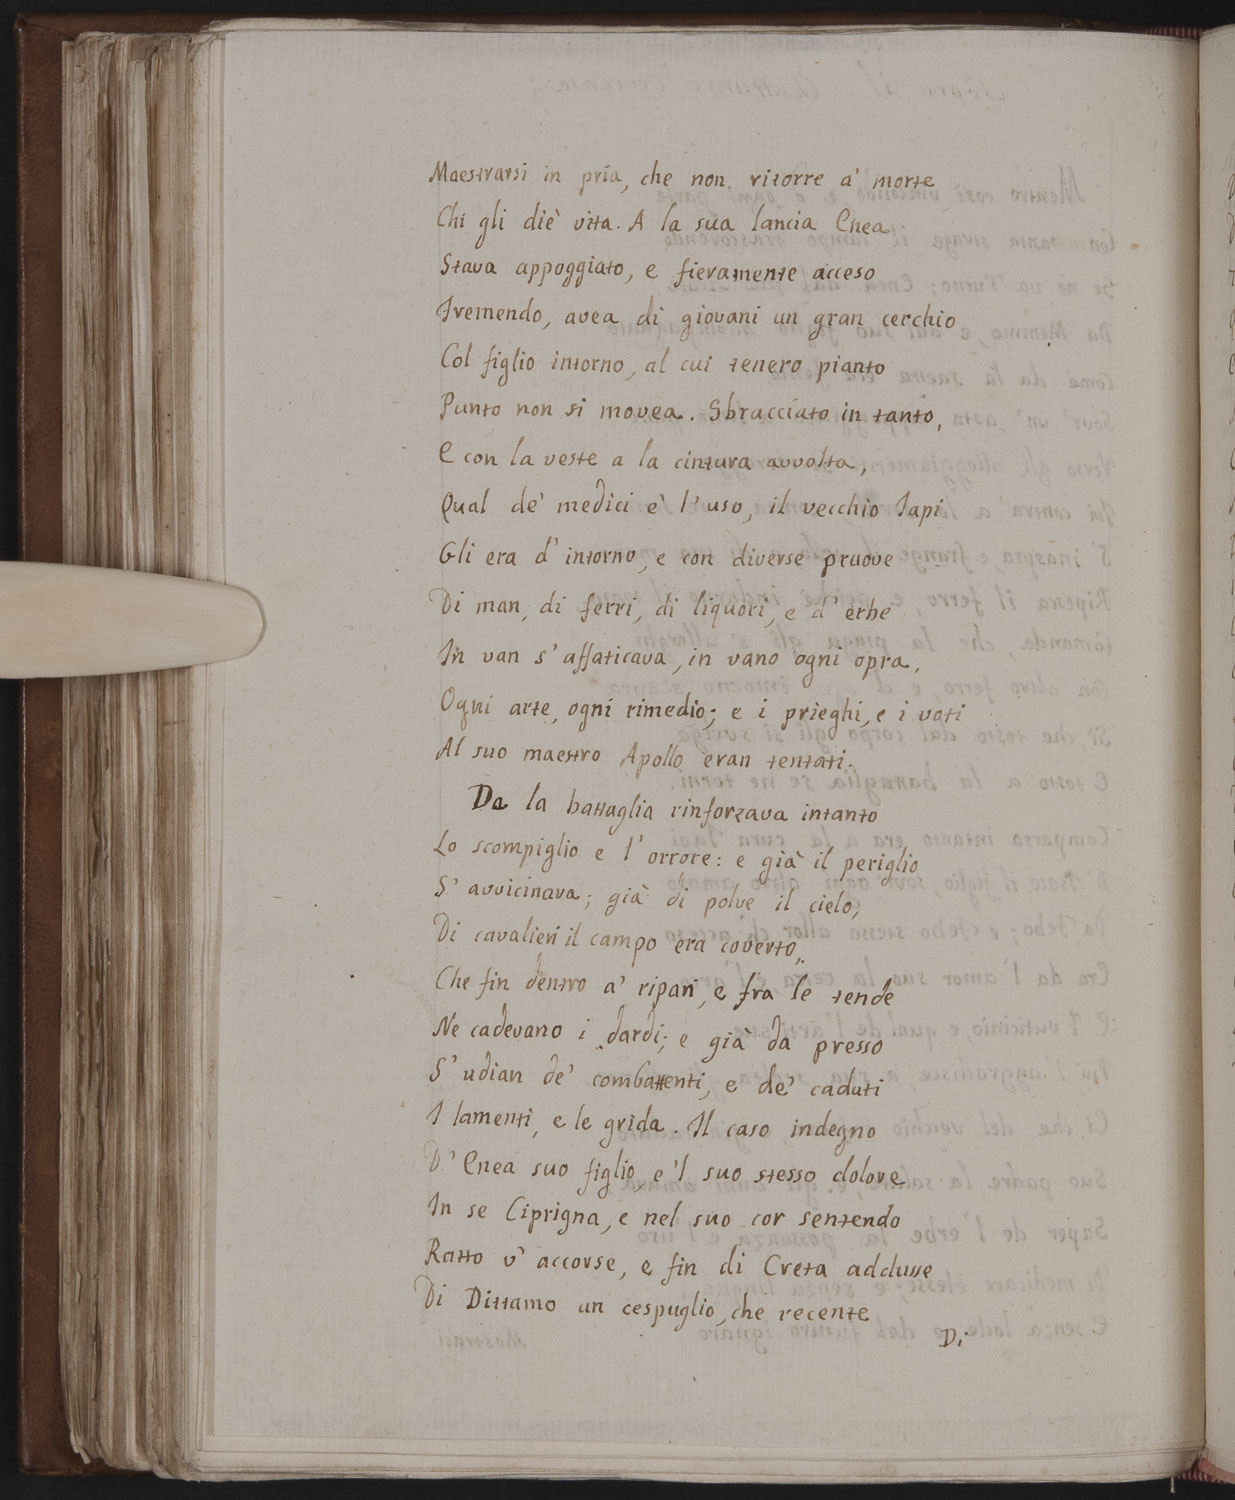 Maestrarsi in pria, che non ritorre a' morte
Chi gli diè vita. A la sua lancia Enea
Stava appoggiato, e fieramente acceso
Fremendo, avea di giovani un gran cerchio
Col figlio intorno, al cui tenero pianto
Punto non si movea. Sbracciato in tanto,
E con la veste a la cintura avvolta,
Qual de' medici è l' uso, il vecchio Iapi
Gli era d' intorno, e con diverse pruove
Di man, di ferri, di liquori, e d' erbe
In van s' affaticava, in vano ogni opra,
Ogni arte, ogni rimedio; e i prieghi, e i voti
Al suo maestro Apollo eran tentati.
Da la battaglia rinforzava intanto
Lo scompiglio e l' orrore: e già il periglio
S' avvicinava; già di polve il cielo,
Di cavalieri il campo era coverto,
Che fin dentro a' ripari, e fra le tende
Ne cadevano i dardi; e già da presso
S' udian de' combattenti, e de' caduti
I lamenti, e le grida. Il caso indegno
D' Enea suo figlio, e 'l suo stesso dolore
In se Ciprigna, e nel suo cor sentendo
Ratto v' accorse, e fin di Creta addusse
Di Dittamo un cespuglio, che recente
Di